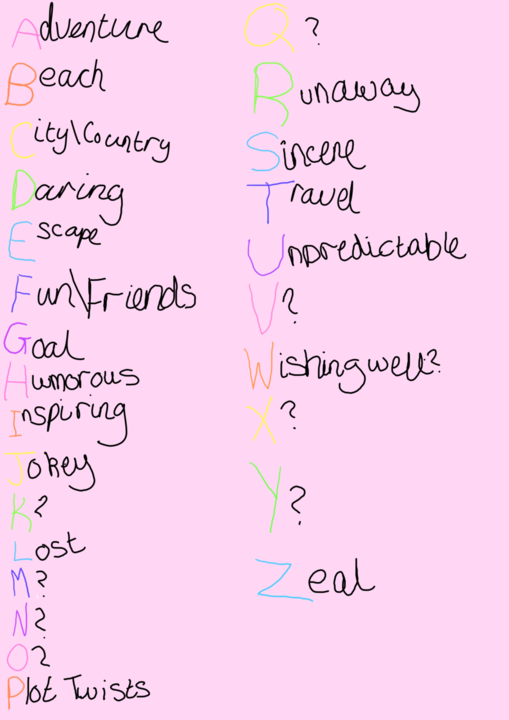 Adventure
Beach
City\Country
Daring
Escape
Fun\Friends
Goal
Humorous
Inspiring
Jokey
K?
Lost
M?
N?
O?
Plot Twists
Q?
Runaway
Sincere
Travel
Unpredictable
V?
Wishing well?
X?
Y?
Zeal